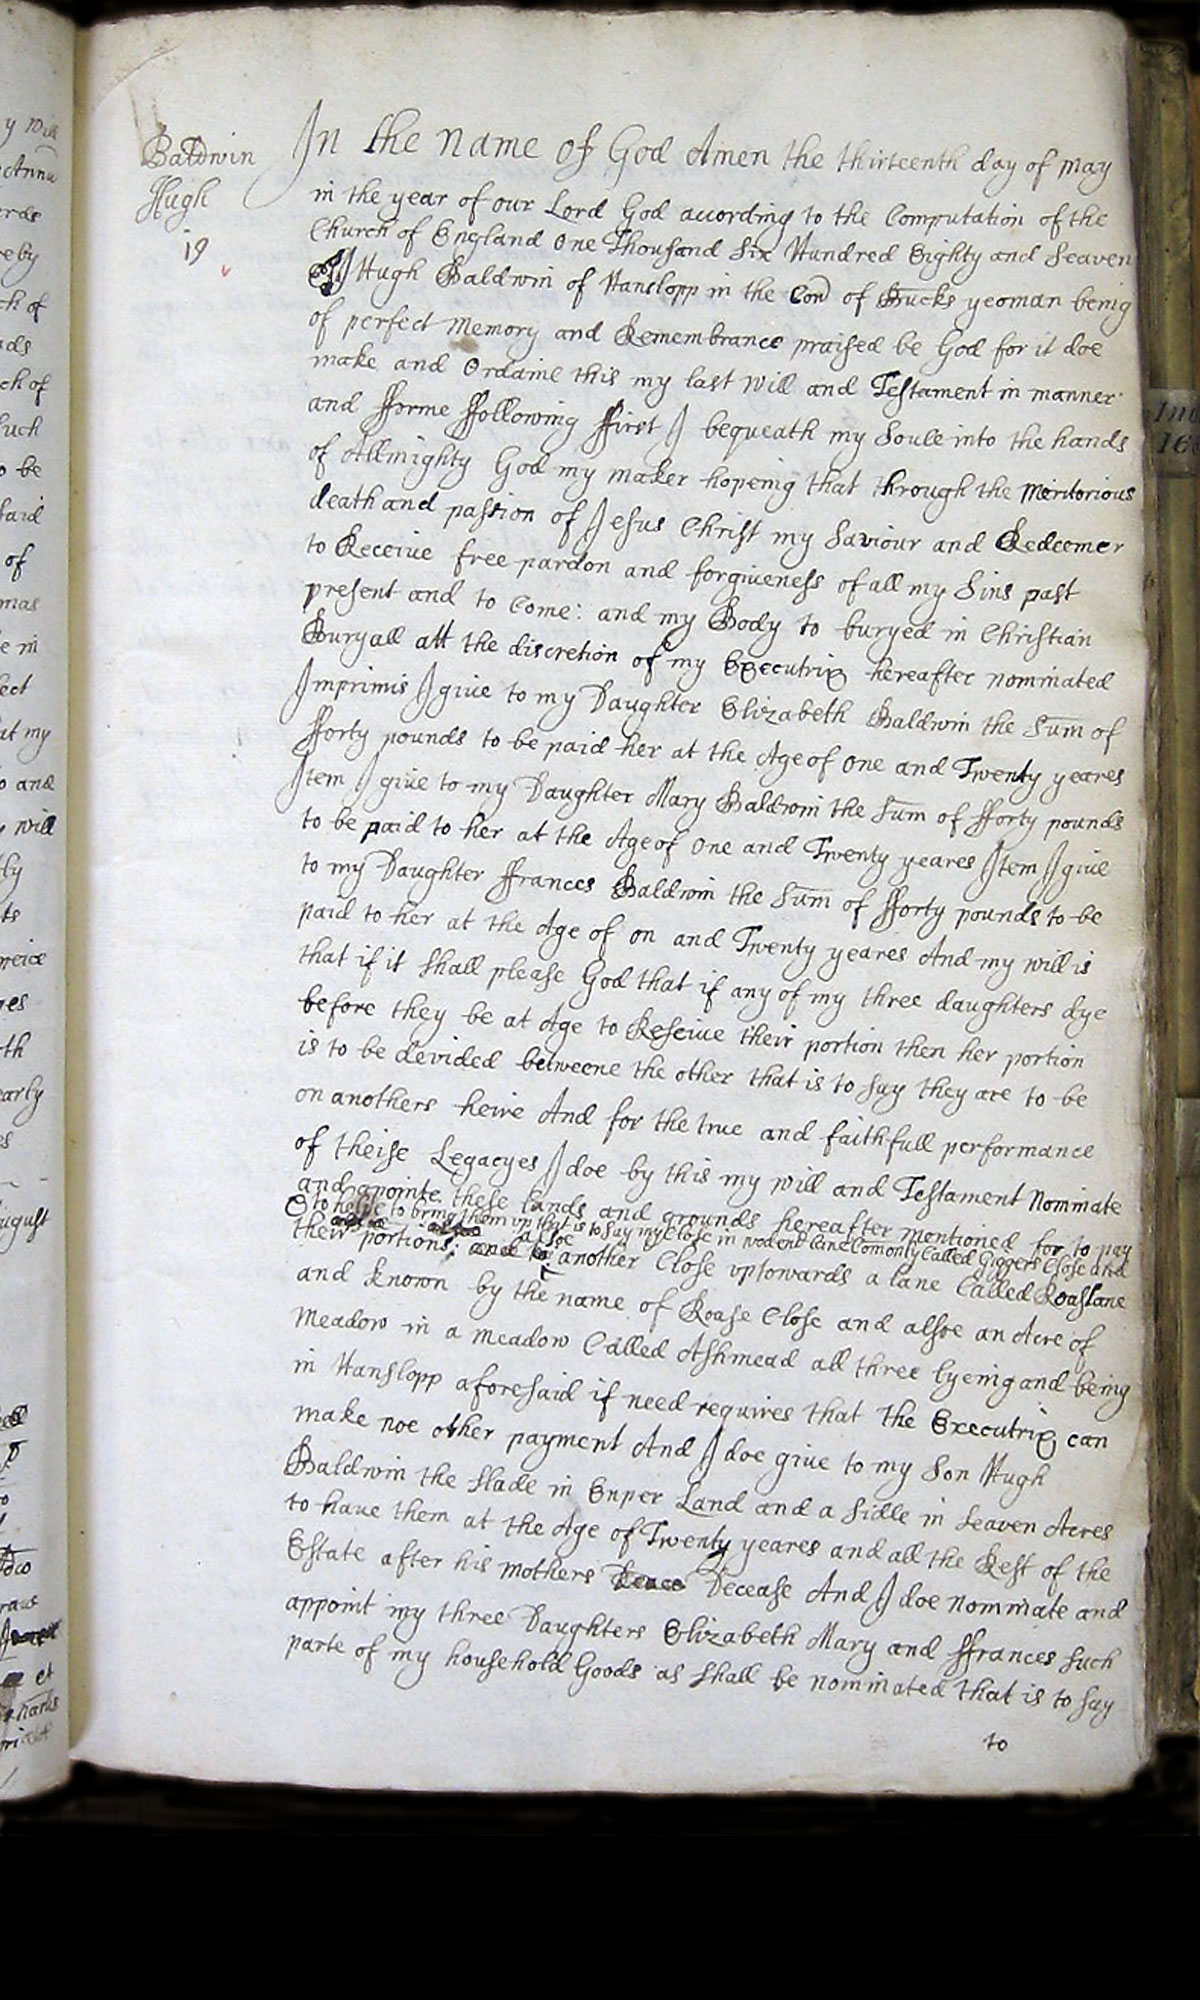 Baldwin
Hugh
19
In the Name of God Amen the thirteenth day of may
in the year of our Lord God according to the Computation of the
Church of England One Thousand Six Hundred Eighty and Seaven
I Hugh Baldwin of Hanslopp in the Com of Bucks yeoman being
of perfect Memory and Remembrance praised be God for it doe
make and Ordaine this my last will and Testament in manner
and fforme ffollowing ffirst I bequeath my Soule into the hands
of Allmighty God my maker hopeing that through the Meritorious
death and passion of Jesus Christ my Saviour and Redeemer
to Receive free pardon and forgiveness of all my Sins past
present and to Come: and my Body to buryed in Christian
Buryall att the discretion of my Executrix hereafter nominated
Imprimis I give to my Daughter Elizabeth Baldwin the Sum of
fforty pounds to be paid her at the Age of one and Twenty yeares
Item I give to my Daughter Mary Baldwin the Sum of fforty pounds
to be paid to her at the Age of One and Twenty yeares Item I give
to my Daughter ffrances Baldwin the Sum of fforty pounds to be
paid to her at the Age of on and Twenty yeares And my will is
that if it shall please God that if any of my three daughters dye
before they be at Age to Resceive their portion then her portion
is to be devided betweene the other that is to say they are to be
on anothers heire And for the true and faithfull performance
of theise Legacyes I doe by this my will and Testament Nominate
and apointe these lands and grounds hereafter mentioned for to pay
to helpe to bring them up that is to Say my Close in wodend lane Comonly Called Giggers Close and
alsoe
their portions: and another Close uptowards a lane Called Roaslane
and known by the name of Roase Close and alsoe an Acre of
Meadow in a meadow Called Ashmead all three lyeing and being
in Hanslopp aforesaid if need requires that the Executrix can
make noe other payment And I doe give to my Son Hugh
Baldwin the Slade in Enper Land and a Sidle in Seaven Acres
to have them at the Age of Twenty yeares and all the Rest of the
Estate after his mothers Decease And I doe nominate and
appoint my three Daughters Elizabeth Mary and ffrances Such
parte of my household Goods as Shall be nominated that is to Say
to